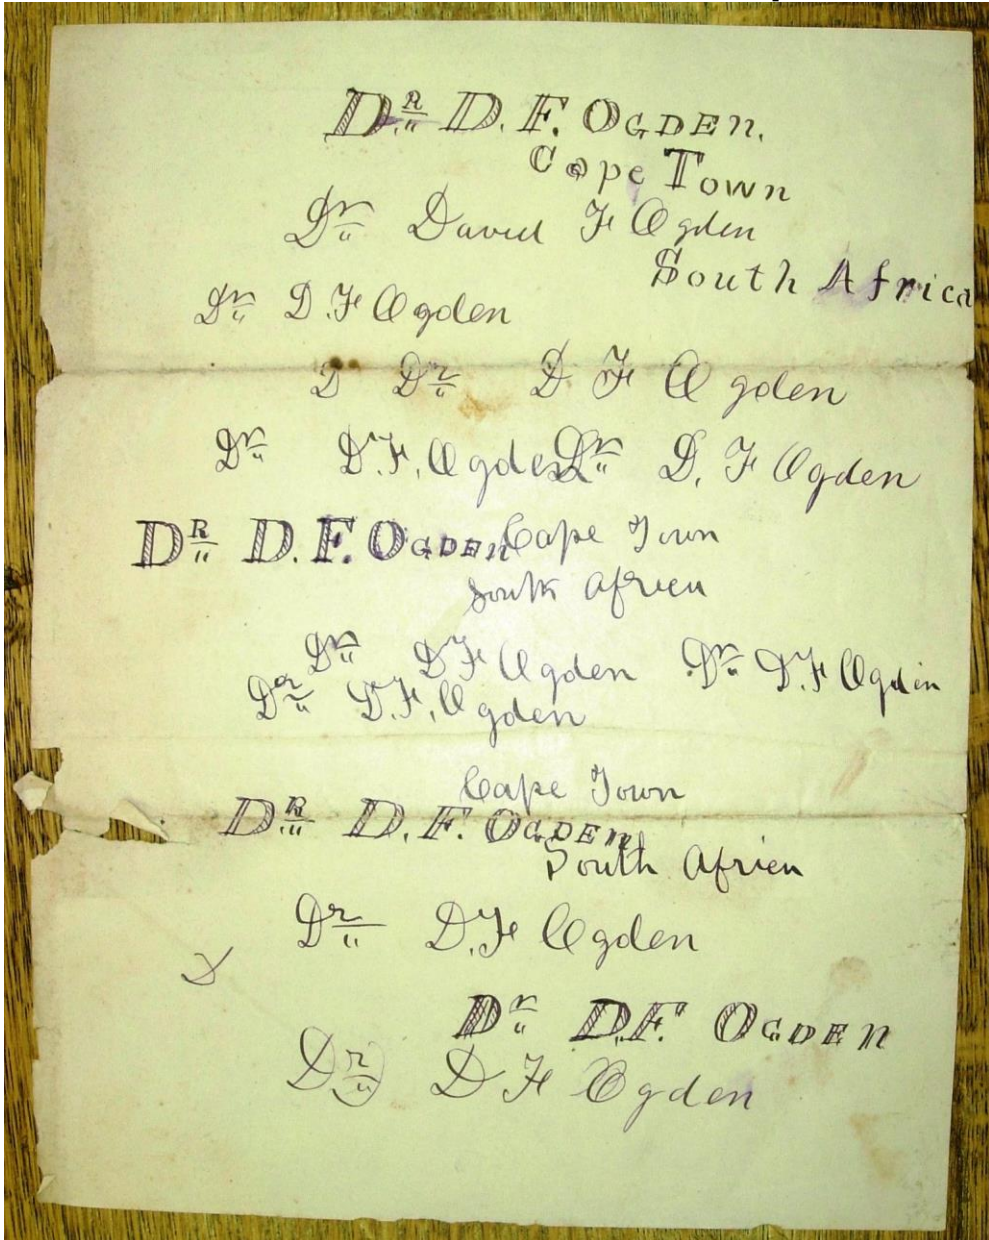 Dr D. F. OGDEn.
Cape Town
Dr David F Ogden
South Africa
Dr D. F Ogden
D Dr D F Ogden
Dr D. F. Ogden Dr D. F Ogden
DR D. F. OGDEn Cape Town
South Africa
Dr D F Ogden Dr D. F Ogden
Dr D. F. Ogden
Cape Town
DR D. F. OGDEn
South Africa
Dr D. F Ogden
D
Dr D. F. OGDEn
Dr D F Ogden